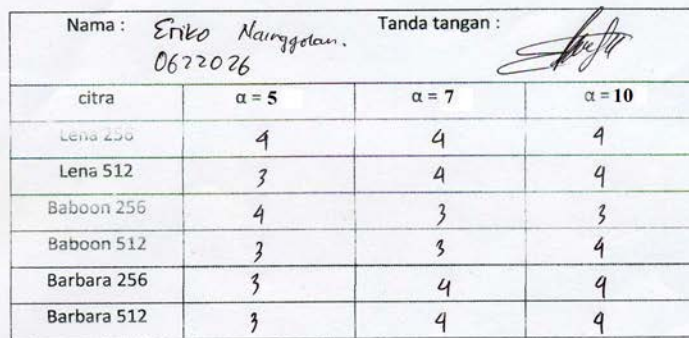 Nama : Eriko Nainggolan. Tanda tangan :
0622026
citra α = 5 α = 7 α = 10
Lena 256 4 4 4
Lena 512 3 4 4
Baboon 256 4 3 3
Baboon 512 3 3 4
Barbara 256 3 4 4
Barbara 512 3 4 4